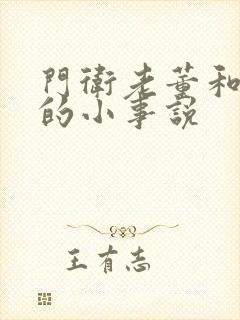 門衛老董和
的小事說
王有志